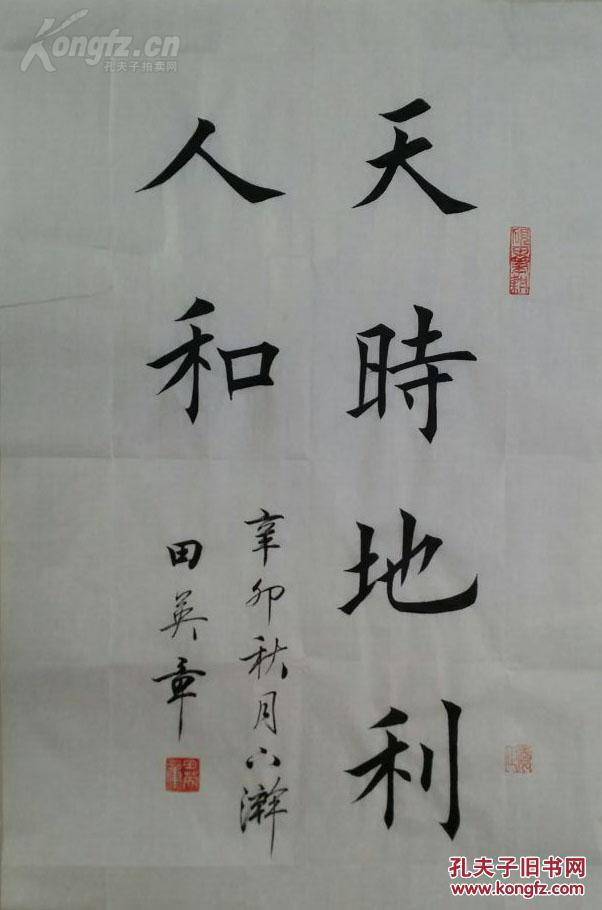 天時地利
人和
辛卯秋月下澣
田英章
Kongfz.cn
孔夫子拍卖网
孔夫子旧书网
www.kongfz.com